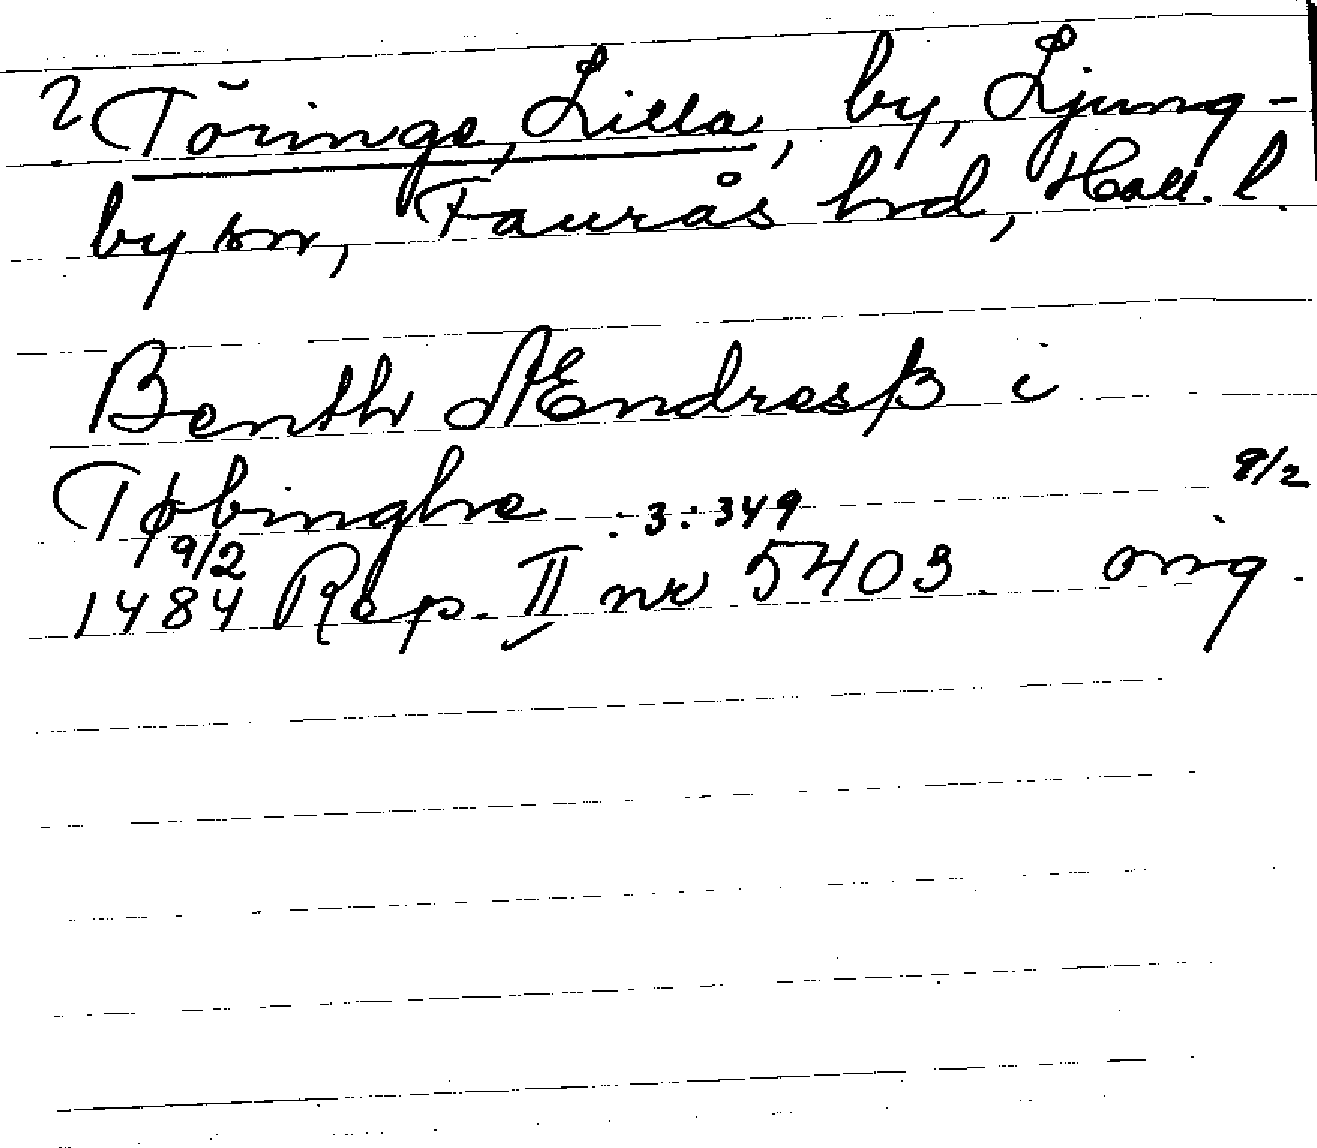 ? Töringe, Lilla, by, Ljung-
by sn, Faurås hd, Hall. l.
Benth Ændresß i
Tøbinghe : 3: 349 9/2
1484 9/2 Rep. II nr 5403 orig.